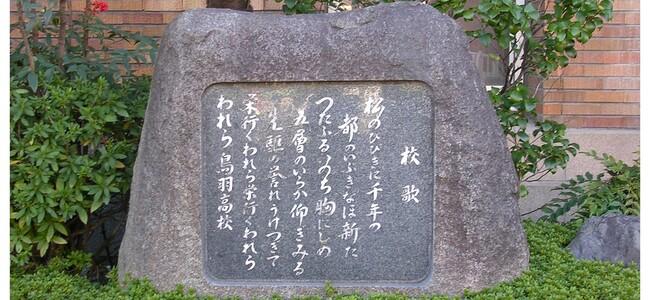 校歌
松のひびきに千年の
都のいぶきなほ新た
つたふるいのち胸にしめ
五層のいらか仰ぎみる
の誉れうけつぎて
栄行くわれら栄行くわれら
われら鳥羽高校